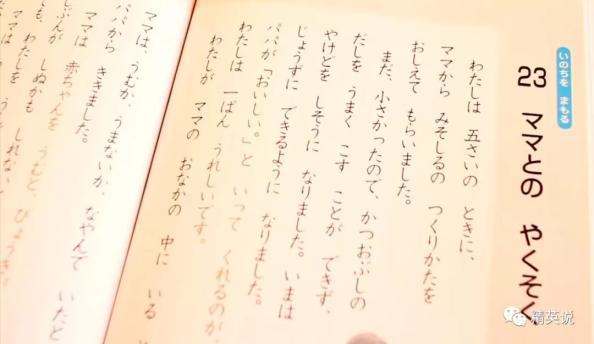 いのちを まもる
23 ママとの やくそく
わたしは 五さいの ときに、
ママから みそしるの つくりかたを
おしえて もらいました。
まだ、小さかったので、かつおぶしの
だしを うまく こす ことが できず、
やけどを しそうに なりました。いまは
じょうずに できるように なりました。
パパが「おいしい。」と いって くれるのが、
わたしは 一ばん うれしいです。
わたしが ママの おなかの 中に いる
ママは、うむか、うまないか、なやんで いたと
パパから ききました。
ママは 赤ちゃんを うむと、びょうきが
しぬかも しれない
も、わたしを
ママは
精英说